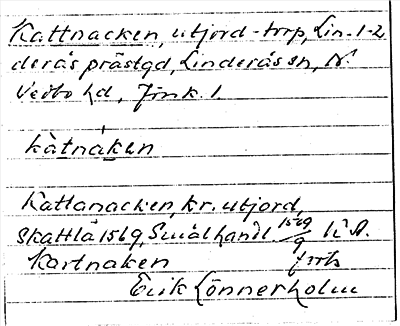 Kattnacken, utjord-torp, Lin. 1-2
derås prästgd, Linderås sn, N.
Vedbo hd, Jönk. l.
kàtnáken
Kattanacken, kr. utjord,
skattlå 1569, Smål. handl 1569/9 K.A.
Kartnaken
Erik Lönnerholm